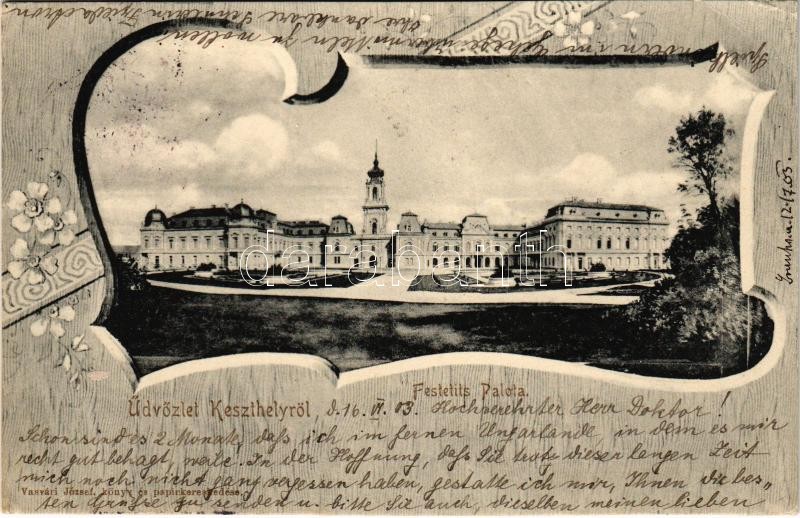 Festetits Palota.
Üdvözlet Keszthelyről, d. 16. VI. 03. Hochverehrter Herr Doktor!
Schon sind es 2 Monate, daß ich im fernen Ungarlande, in dem es mir
recht gut behagt, weile. In der Hoffnung, daß Sie trotz dieser langen Zeit
mich noch nicht ganz vergessen haben, gestatte ich mir, Ihnen die bes-
Vasvári József, könyv és papirkereskedése.
ten Grüße zu senden u. bitte Sie auch, dieselben meinen lieben
übermitteln zu wollen.
Ihre dankbare
darabanth